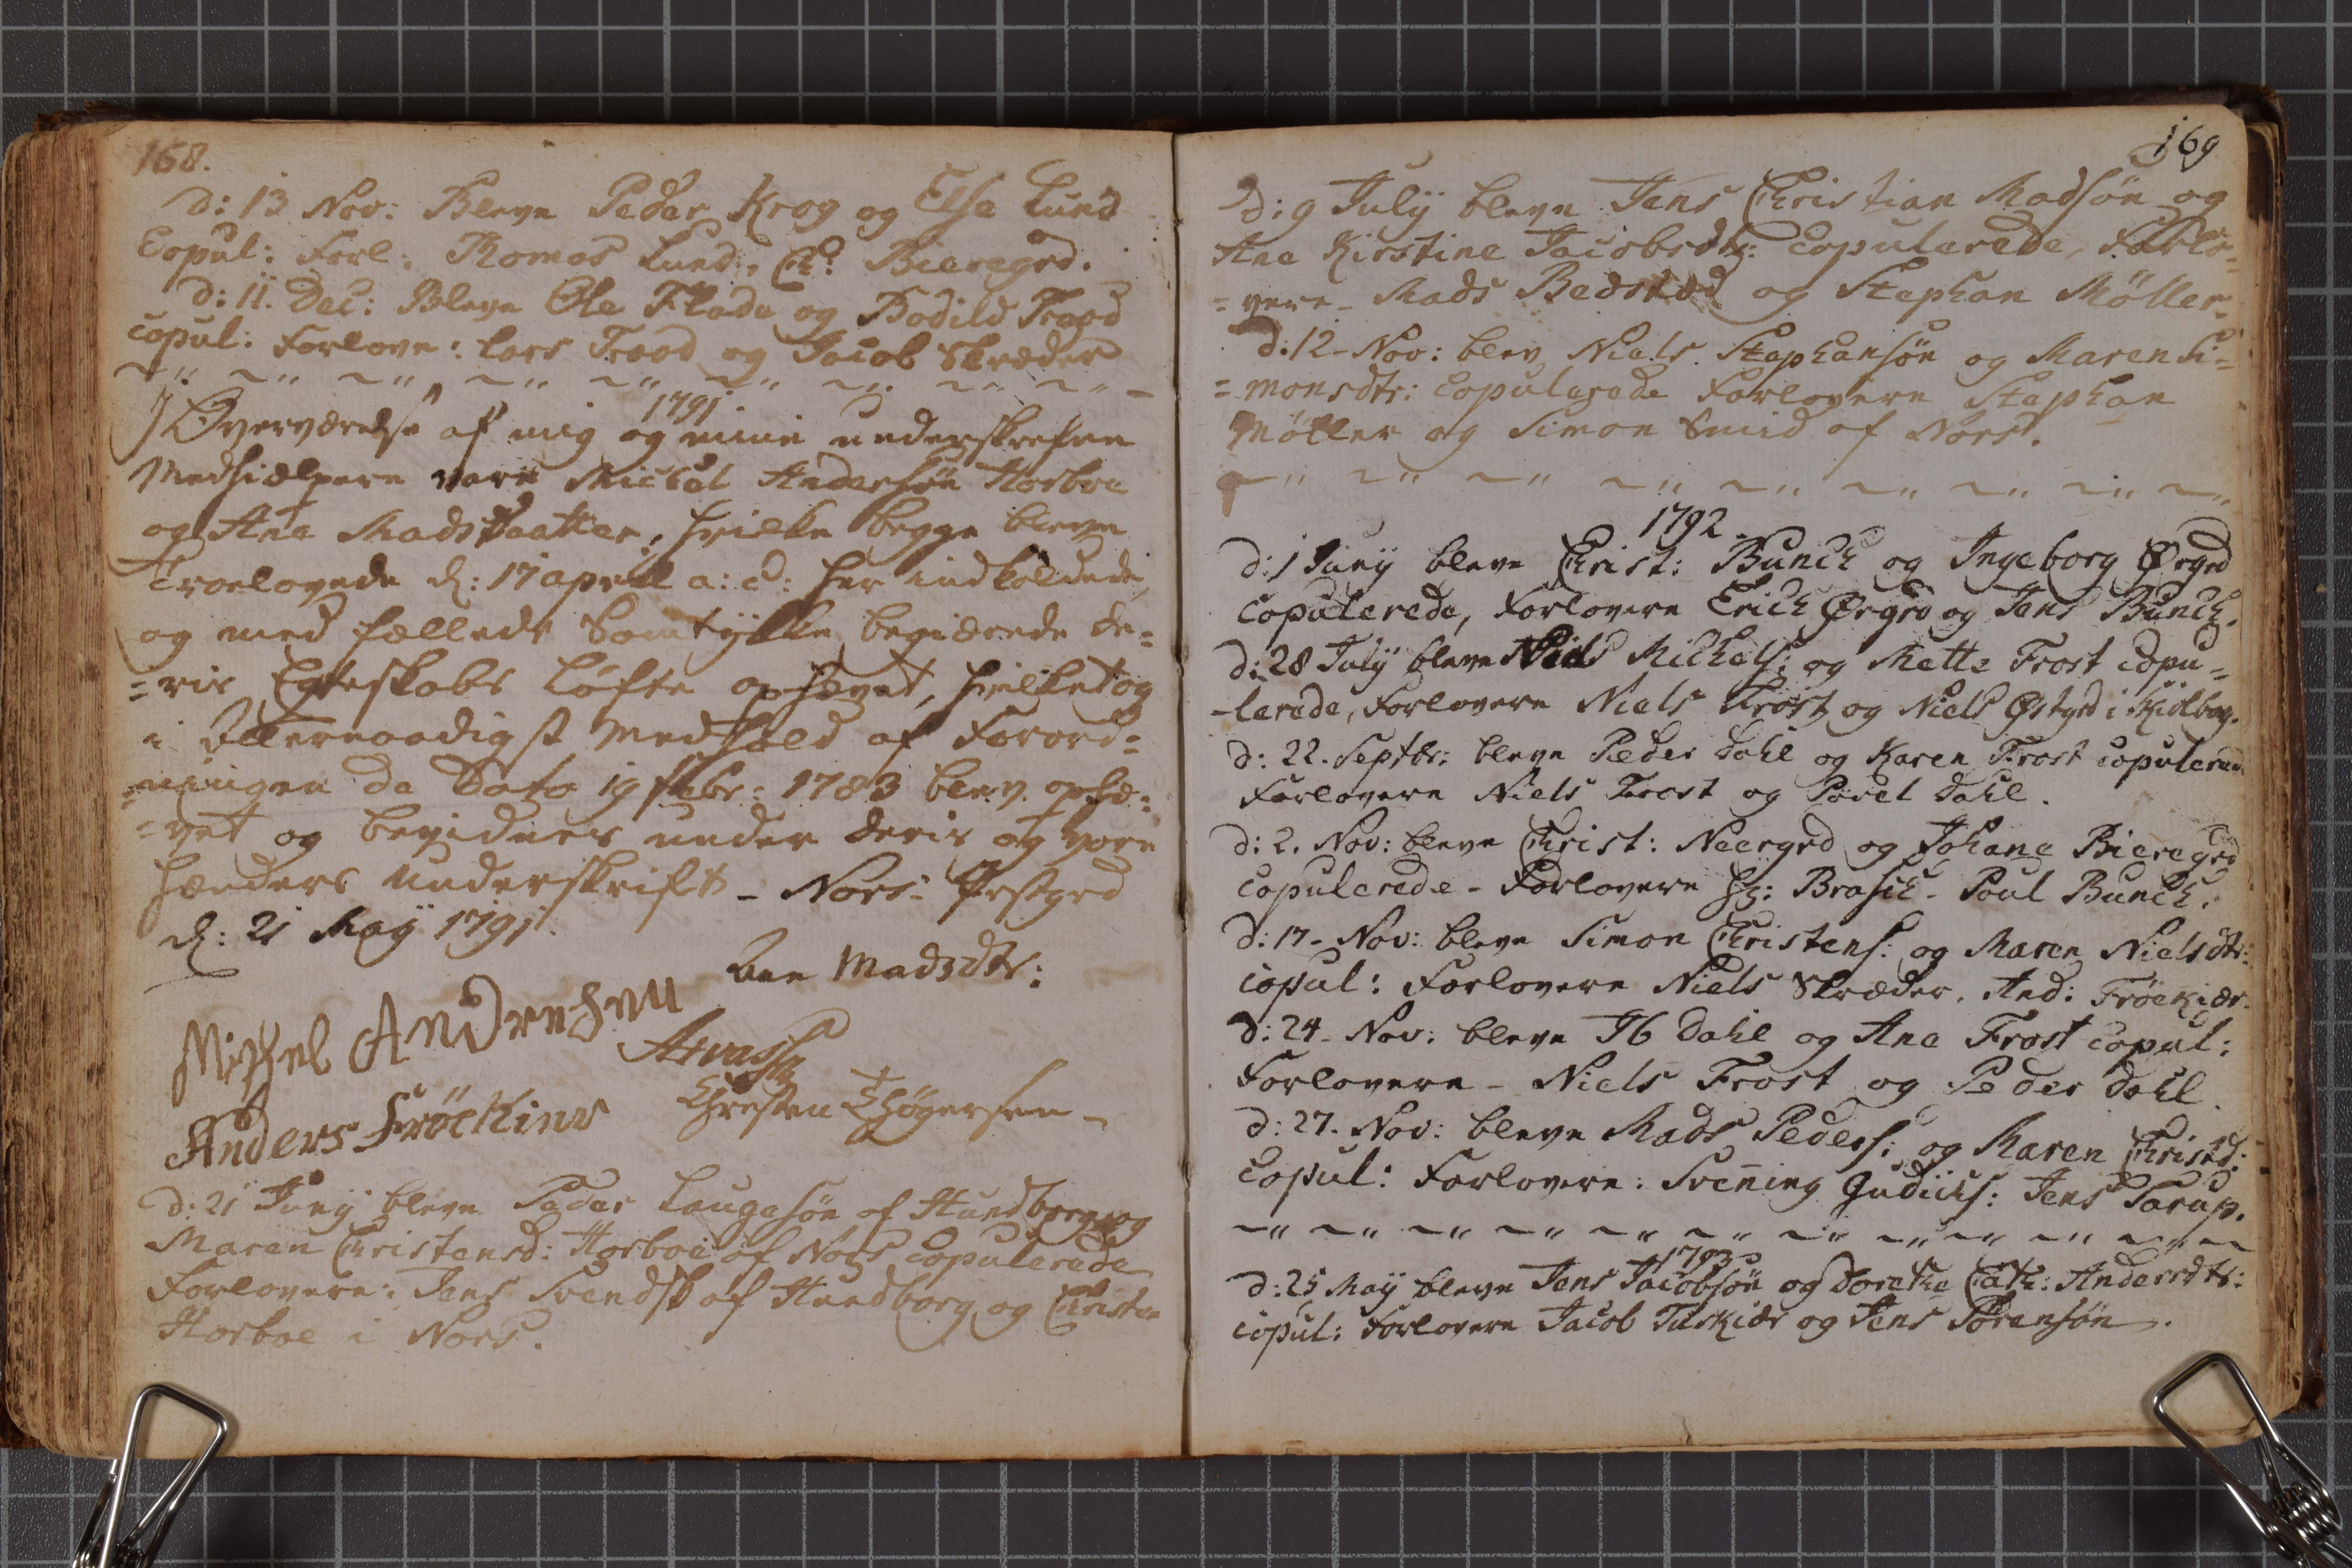 168.
d: 13 Nov: Bleve Peder Krog og Else Lund
Copul: Forl: Thomas Lund, Ch: Bieregrd.
d: 11. Dec: Bleve Ole Flade og Bodild Frood
copul: Forlove: Lars Frood og Jacob Skræder
1791.
I Overværelse af mig og mine underskrefne
Medhielpere vare Michel Andersøn Horboe
og Ana Madsdaatter, hvilke begge bleve
Troelovede d: 17 april a: c: her indkaldede,
og med fælleds Samtykke begierede de=
=ris Egteskabs Løfte ophævet, hvilket og
i Allernaadigst Medhold af Forord=
=ningen de Dato 19 Febr: 1783 blev ophæ=
=vet og bevidnes under deris og vore
Hænders Underskrift - Nors Præstgrd
d: 21 May 1791.
Ane Madsdtr:
Michel Andersen
Anders Fröekiær
Christen Thøgersen -
d: 21 Juny bleve Peder Laugesøn af Hundborg og
Maren Christensd: Horboe af Nors Copulerede
Forlovere: Jens Svendsk af Hundborg og Christen
Horboe i Nors.
169
d: 9 July bleve Jens Christian Madsøn og
Ana Kirstine Jacobsdtr: Copulerede, Forlo=
=vere - Mads Bedsted og Stephan Möller.
d: 12 - Nov: blev Niels Stephansøn og Maren Si=
=monsdtr: Copulerede Forlovere Stephan
Möller og Simon Smid af Nors.
1792.
d: 1 Juny bleve Christ: Bunch og Ingeborg Ørgrd
Copulerede, Forlovere Erich Ørgrd og Jens Bunch.
d: 28 July bleve Niels Michels: og Mette Frost copu=
-lerede, Forlovere Niels Frost og Niels Østgrd i Kidlbog.
d: 22. Septbr: bleve Peder Dahl og Karen Frost copulerede
Forlovere Niels Frost og Povel Dahl.
d: 2. Nov: bleve Christ: Neergrd og Johane Bieregrd
Copulerede - Forlovere Hr: Brasch - Poul Bunch.
d: 17 - Nov: bleve Simon Christens: og Maren Nielsdtr:
copul: Forlovere Niels Skræder. And: Fröekiær.
d: 24 - Nov: bleve Ib Dahl og Ane Frost copul:
Forlovere - Niels Frost og Peder Dahl.
d: 27. Nov: bleve Mads Peders: og Maren Christd:
Copul: Forlovere: Svening Gudichs: Jens Torup.
1793
d: 25 May bleve Jens Jacobsøn og Dorethe Cath: Andersdtr:
copul: Forlovere Jacob Tuskiær og Jens Sörensön.